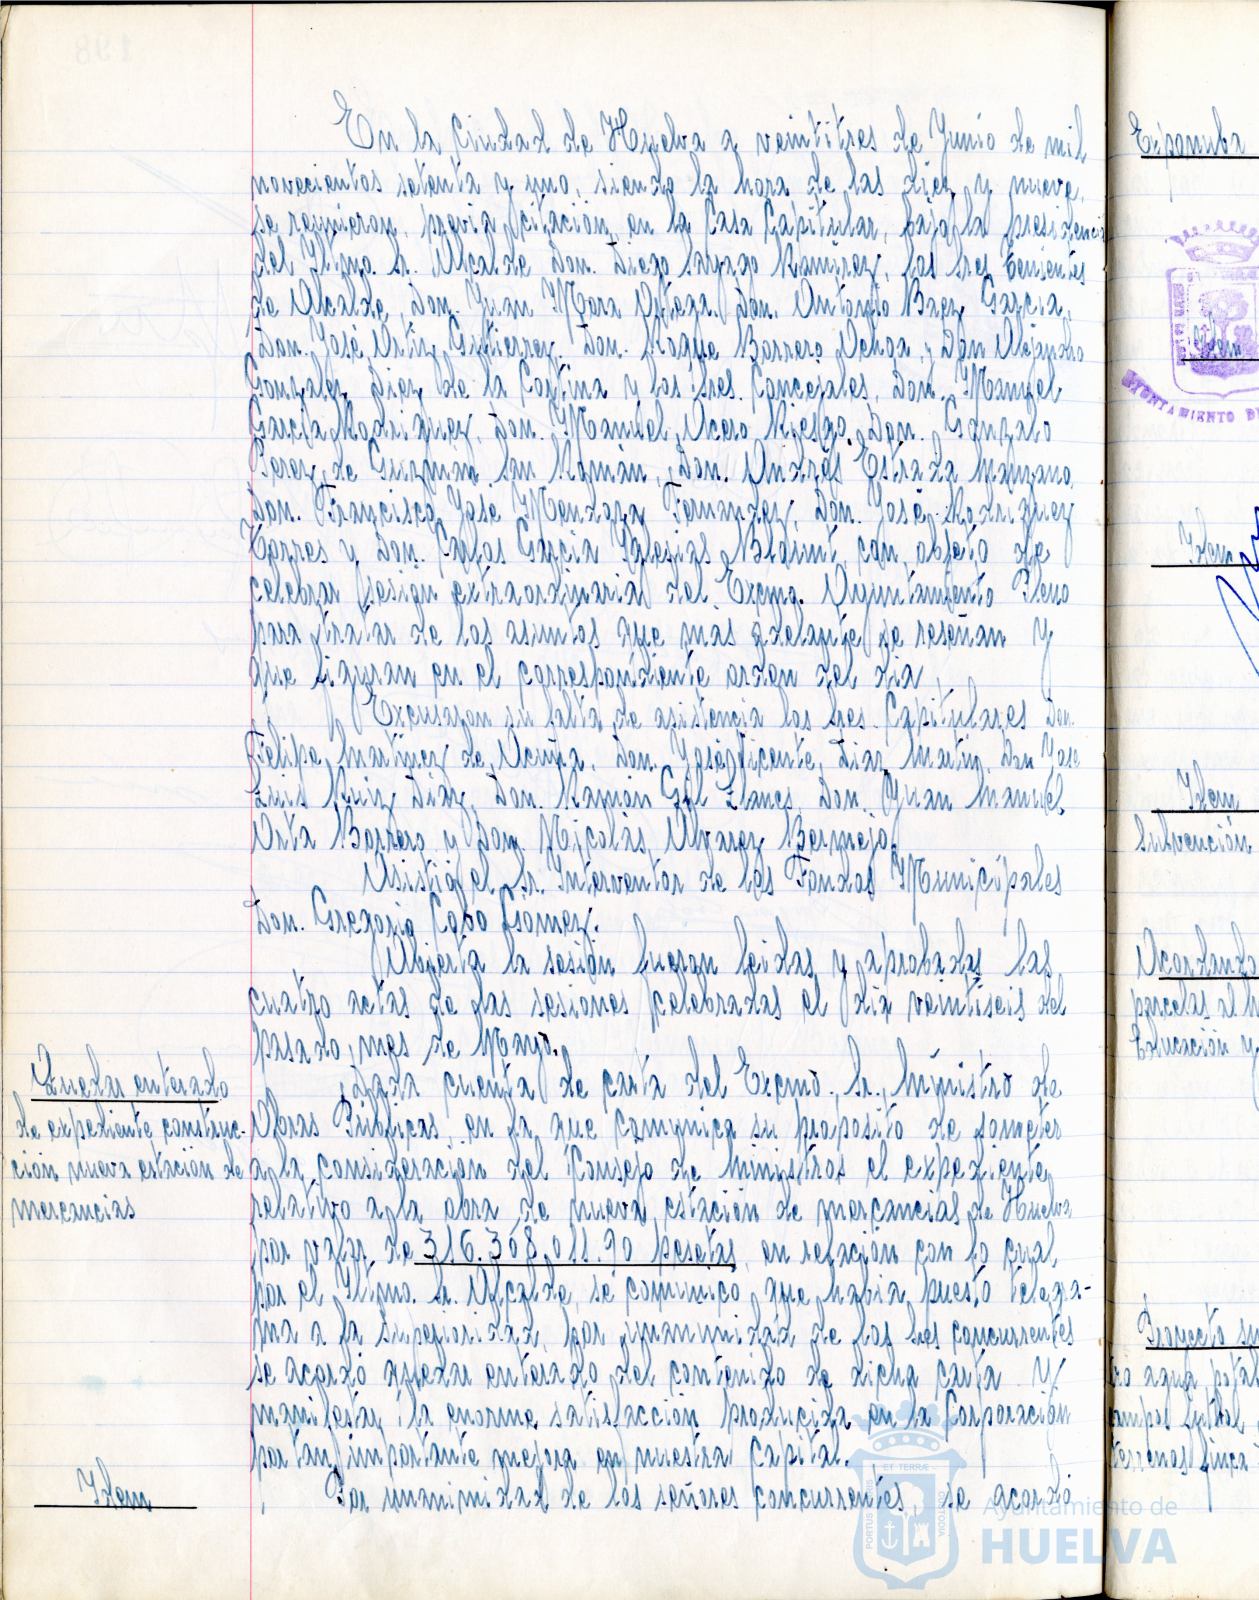 En la Ciudad de Huelva a veintitres de Junio de mil
novecientos setenta y uno, siendo la hora de las diez y nueve,
se reunieron, previa citación, en la Casa Capitular, bajo la presidencia
del Iltmo. Sr. Alcalde Don. Diego Sayago Ramírez, los sres Tenientes
de Alcalde, Don. Juan Mora Ortega. Don. Antonio Baez Garcia,
Don. José Ortiz Gutierrez. Don. Roque Barrero Ochoa, y Don Alejandro
Gonzalez Diez de la Cortina y los sres. Concejales, Don. Manuel
Garcia Rodriguez, Don. Manuel Acero Riesgo, Don. Gonzalo
Perez de Guzmán San Román, Don. Andrés Estrada Manzano,
Don. Francisco Jose Mendoza Fernandez, Don. José Rodriguez
Torres y Don. Carlos Garcia Iglesias Ntarint, con objeto de
celebrar sesion extraordinaria del Excmo. Ayuntamiento Pleno
para tratar de los asuntos que mas adelante se reseñan y
que figuran en el correspondiente orden del dia,
Excusaron su falta de asistencia los sres. Capitulares Don.
Felipe Martinez de Acuña, Don. José Vicente Diaz Martin, Don Jose
Luis Ruiz Diaz, Don. Ramón Gil Llanes, Don. Juan Manuel
Orta Barrero y Don. Nicolás Alvarez Bermejo.
Asistió el Sr. Interventor de los Fondos Municipales
Don. Gregorio Cobo Gomez.
Abierta la sesión fueron leidas y aprobadas las
cuatro actas de las sesiones celebradas el dia veintiseis del
pasado mes de Mayo.
Quedar enterado
de expediente construc-
ción nueva estación de
mercancias
Dada cuenta de carta del Excmo. Sr. Ministro de
Obras Públicas, en la que comunica su proposito de someter
a la consideración del Consejo de Ministros el expediente
relativo a la obra de nueva estación de mercancias de Huelva
por valor de 316.308.011.90 pesetas, en relación con lo cual
por el Iltmo. Sr. Alcalde, se comunicó que habia puesto telegra-
ma a la Superioridad, por unanimidad de los sres concurrentes
se acordó quedar enterado del contenido de dicha carta y
manifestar la enorme satisfacción producida en la Corporación
por tan importante mejora en nuestra Capital.
Idem
Por unanimidad de los señores concurrentes se acordó
Idem
Idem
Idem
Subvención
Acordando
parcelas al
Educación y
Proyecto
agua potab
campos futbol
terrenos finca
AYUNTAMIENTO DE
ET TERRÆ
PORTUS MARIS
CUSTODIA
Ayuntamiento de
HUELVA